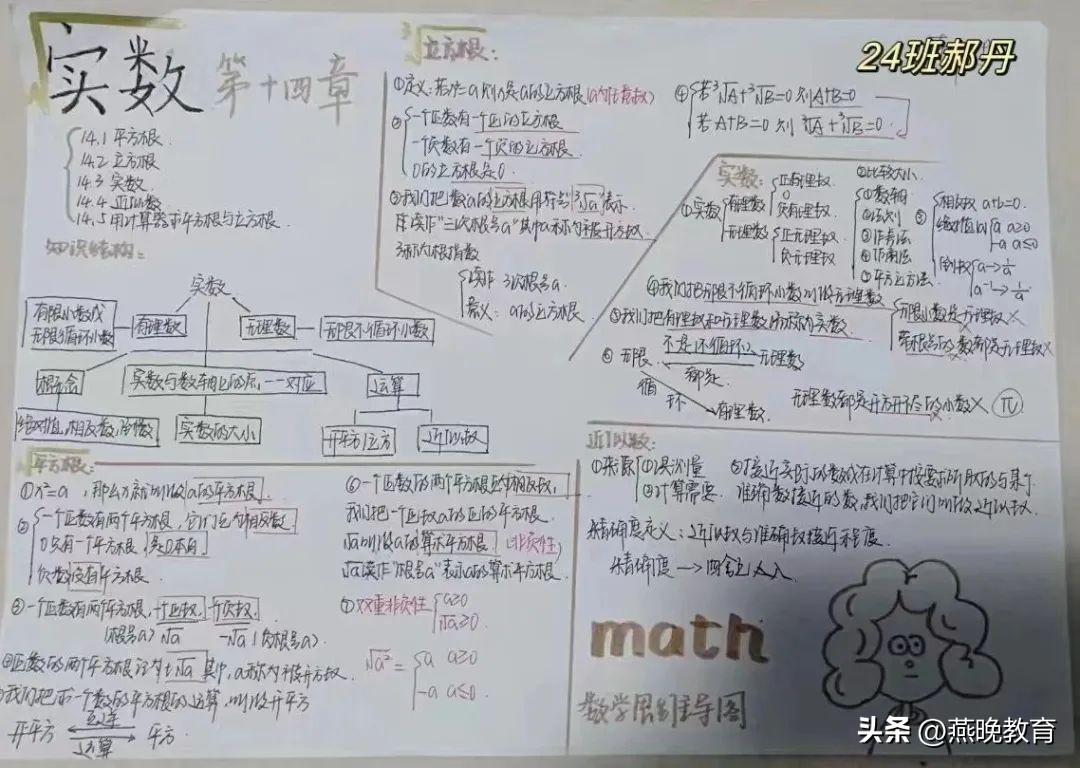 实数 第十四章
14.1 平方根
14.2 立方根
14.3 实数
14.4 近似数
14.5 用计算器求平方根与立方根
知识结构:
实数
有限小数或
无限循环小数
有理数
无理数
无限不循环小数
概念
实数与数轴上的点,一一对应
运算
绝对值,相反数,倒数
实数的大小
开平方/立方
近似数
平方根:
①x²=a,那么x就叫做a的平方根
② 一个正数有两个平方根,它们互为相反数
0只有一个平方根 是0本身
负数没有平方根
③一个正数有两个平方根,一个正数,一个负数.
(根号a) √a -√a (负根号a)
④正数a的两个平方根记为±√a 其中,a称为被开方数
我们把求一个数的平方根的运算,叫做开平方
开平方 互逆 运算 平方
⑥一个正数的两个平方根互为相反数,
我们把一个正数a的正的平方根
√a叫做a的算术平方根 (非负性)
√a读作"根号a"表示a的算术平方根
⑦双重非负性 a≥0
√a≥0
√a²= a a≥0
-a a≤0
立方根:
②一个正数有一个正的立方根
一个负数有一个负的立方根
0的立方根是0
③我们把数a的立方根用符号"³√a"表示
读作"三次根号a"其中a称为被开方数
3称为根指数
读作 3次根号a
意义: a的立方根
④若³√A+³√B=0 则A+B=0
若A+B=0 则 ³√A+³√B=0
24班郝丹
实数:
①实数
有理数
正有理数
0
负有理数
无理数
正无理数
负无理数
②比较大小
①数轴
③作差法
④作商法
⑤平方立方法
③
相反数 a+b=0
绝对值|a| a a≥0
-a a≤0
倒数 a→1/a
a⁻¹→1/a
④我们把无限不循环小数叫做无理数
⑤我们把有理数和无理数统称为实数
无限小数是无理数×
带根号的数都是无理数×
⑥无限 不是 循环 无理数
都是
循环 有理数
无理数都是开方开不尽的小数× π
近似数:
①来源
①误差测量
②计算需要
②接近实际的数或在计算中按要求所取的与某个
准确数接近的数,我们把它们叫做近似数
精确度定义:近似数与准确数接近程度
精确度→四舍五入
math
数学思维导图
头条 @燕晚教育